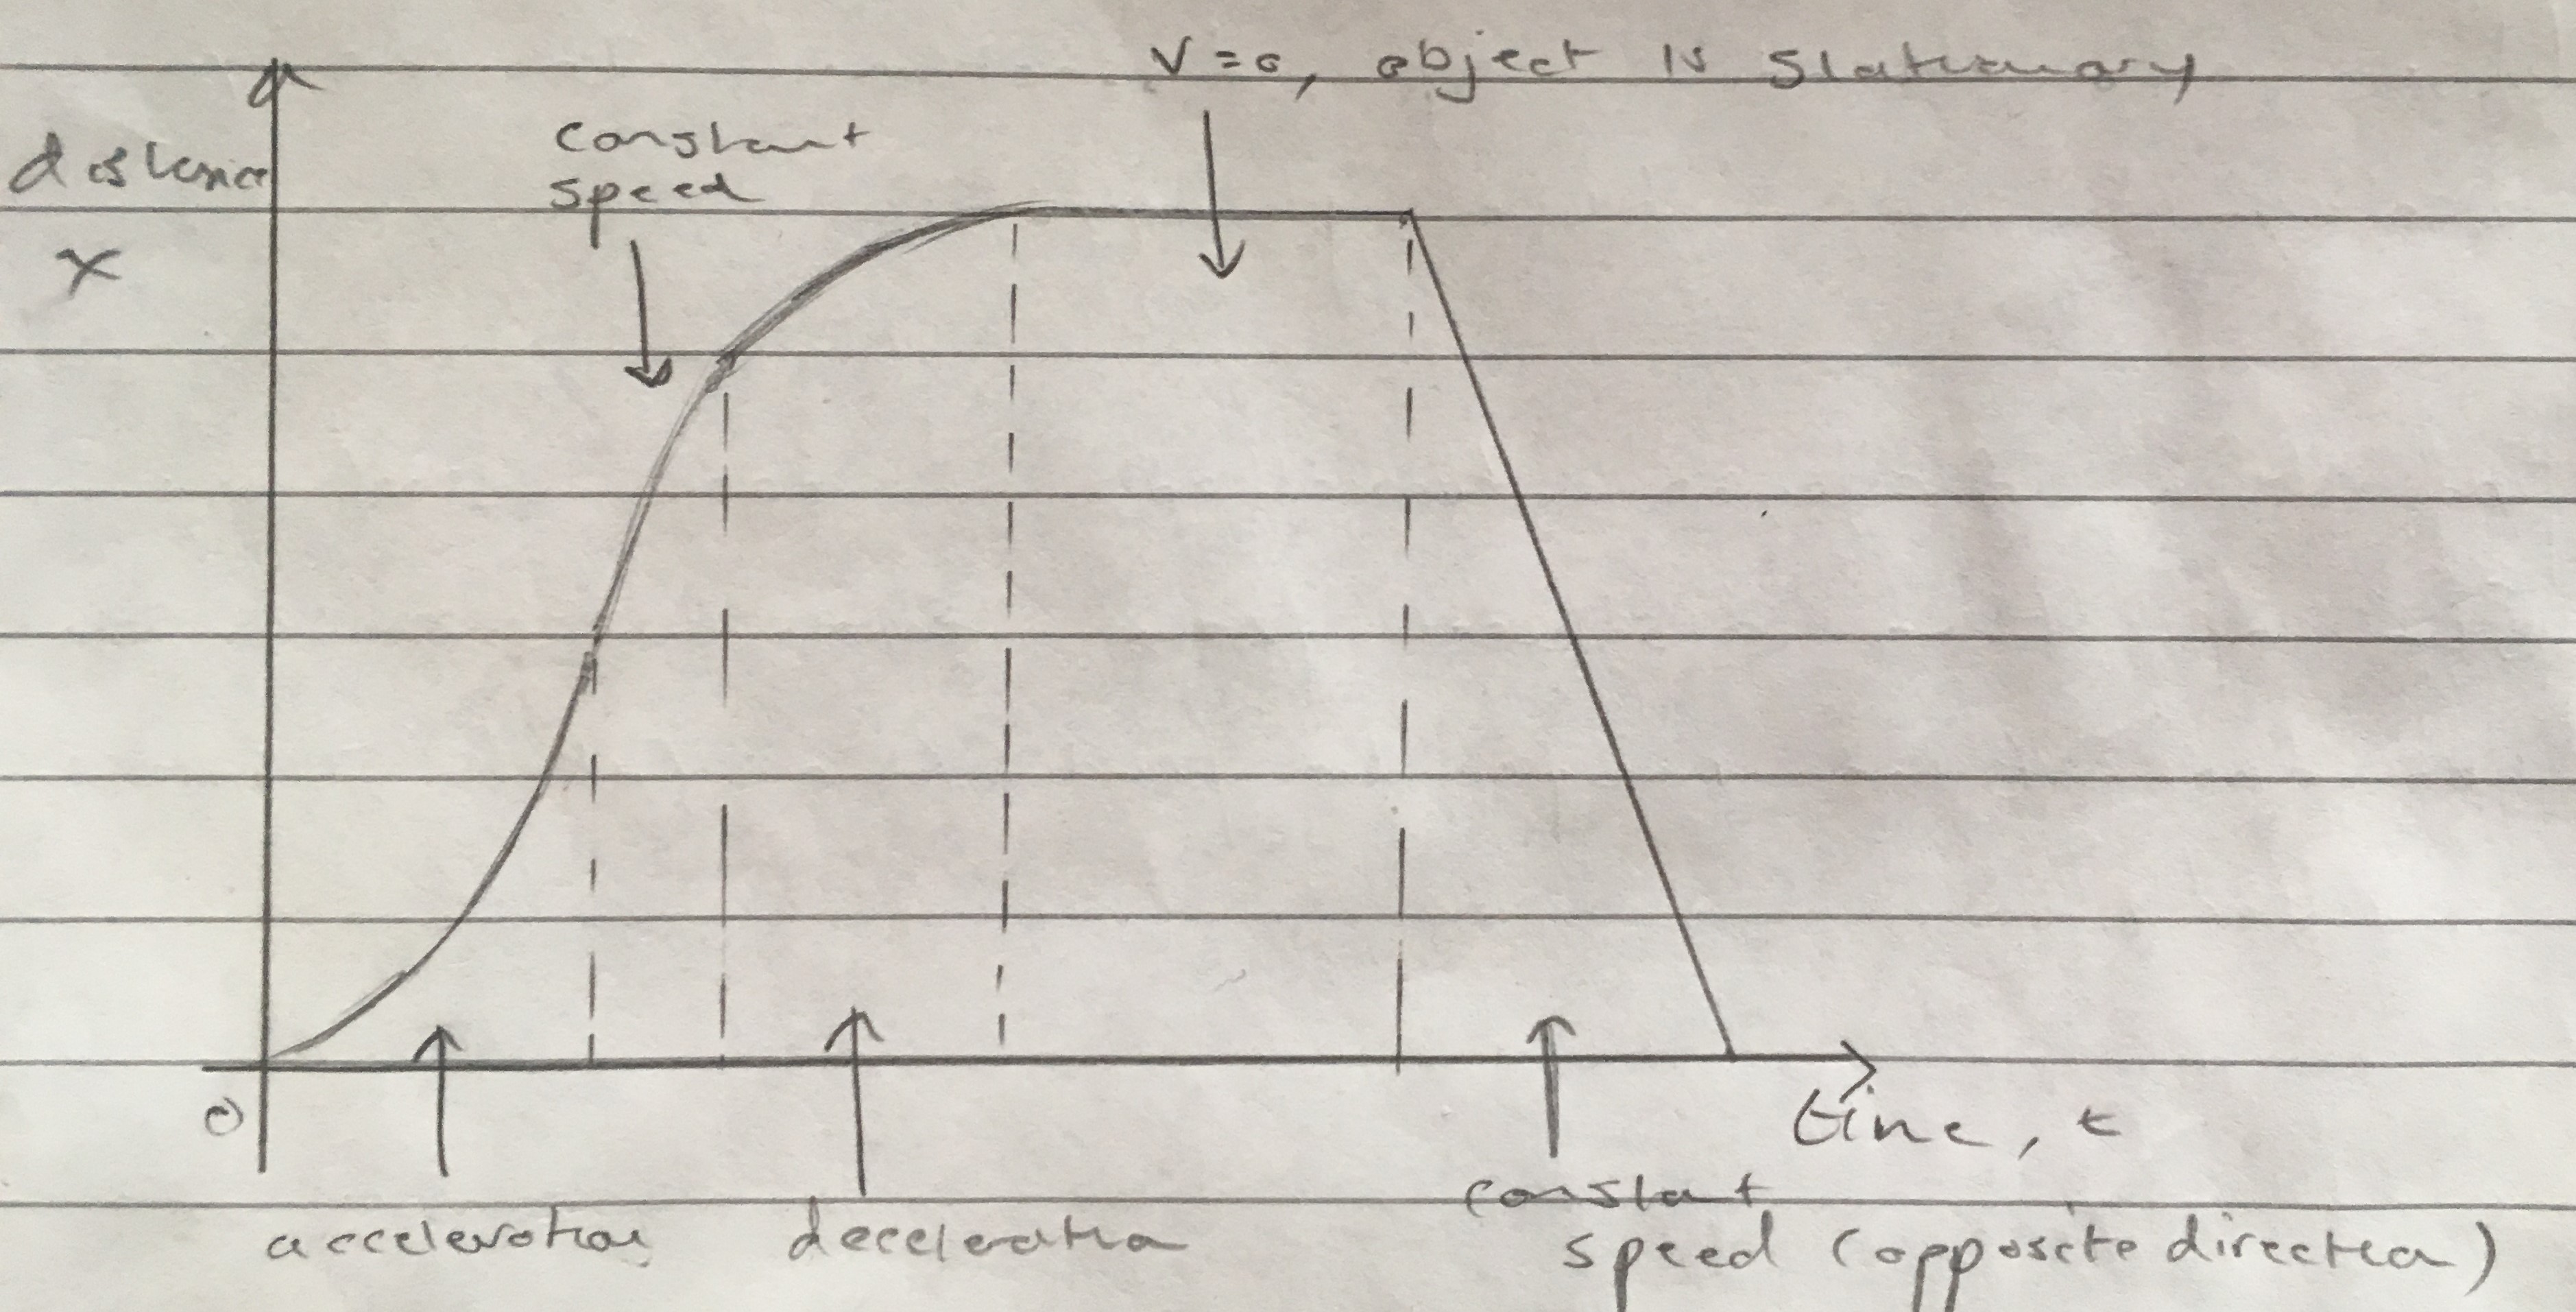 V=0, object is stationary
constant
speed
distance
x
0
time, t
acceleration
deceleration
constant
speed (opposite direction)